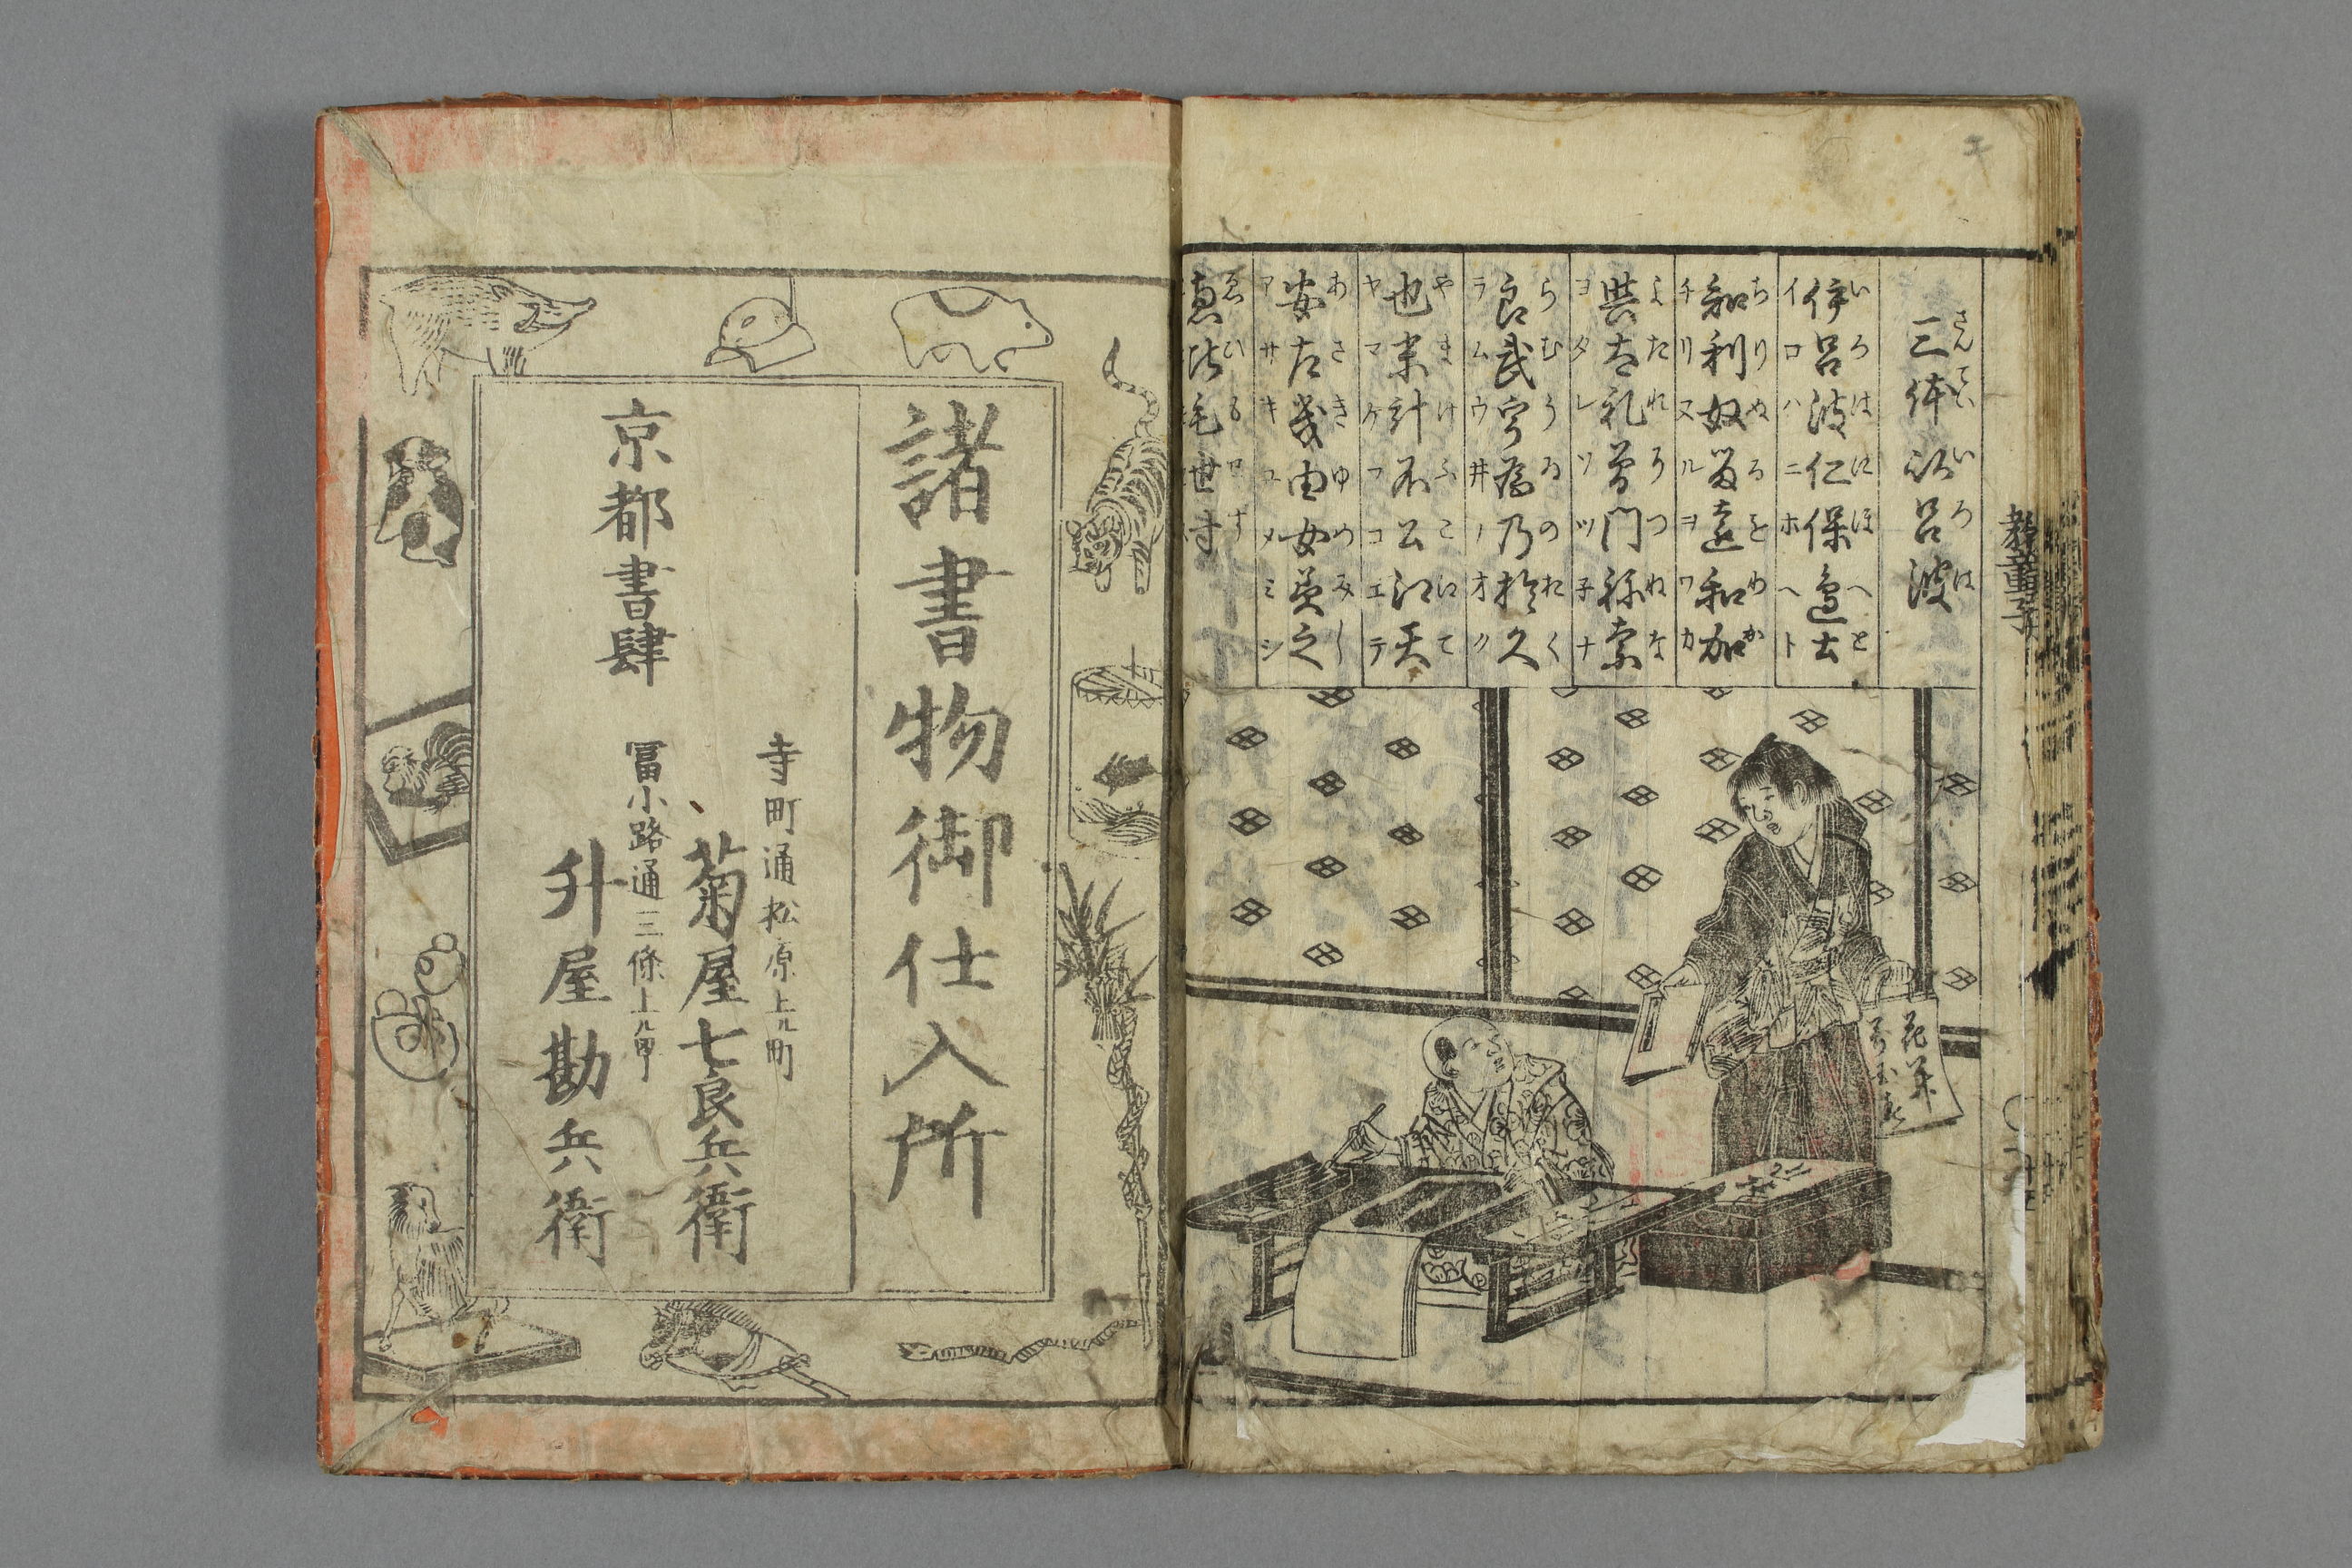 教童子
さんていいろは
三体以呂波
いろはにほへと
伊呂波仁保邊土
イロハニホヘト
ちりぬるをわか
知利奴留遠和加
チリヌルヲワカ
よたれそつねな
與太礼曽門祢奈
ヨタレソツ子ナ
らむうゐのおく
良武宇為乃於久
ラムウ井ノオク
やまけふこえて
也末計不公江天
ヤマケフコエテ
あさきゆめみし
安左幾由女美之
アサキユメミシ
ゑひもせず
恵比毛世寸
諸書物御仕入所
京都書肆
寺町通松原上ル町
菊屋七良兵衛
冨小路通三條上ル町
升屋勘兵衛